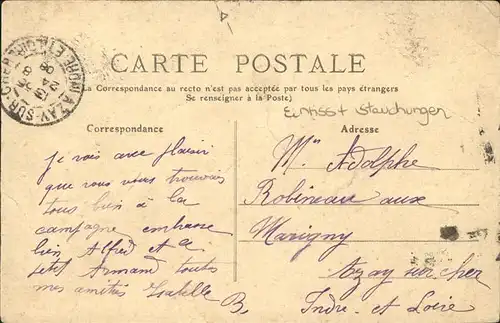 CARTE POSTALE
(La Correspondance au recto n'est pas acceptée par tous les pays étrangers
Se renseigner à la Poste)
Einriss + Stauchungen
Correspondance
Je vois avec plaisir
que vous vous trouvais
tous bien à la
campagne embrasse
bien Alfred et a
Armand toutes
mes amitiés Isabelle B.
Adresse
Adolphe
Robineau aux
Marigny
Azay sur cher
Indre et Loire